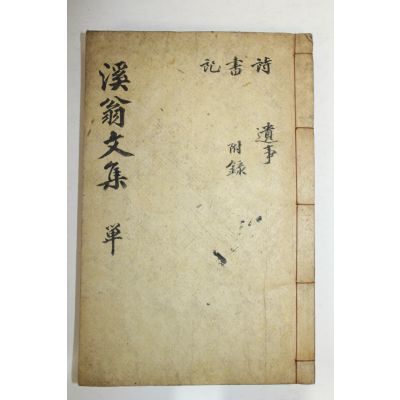 詩書記
遺事
附錄
溪翁文集 単